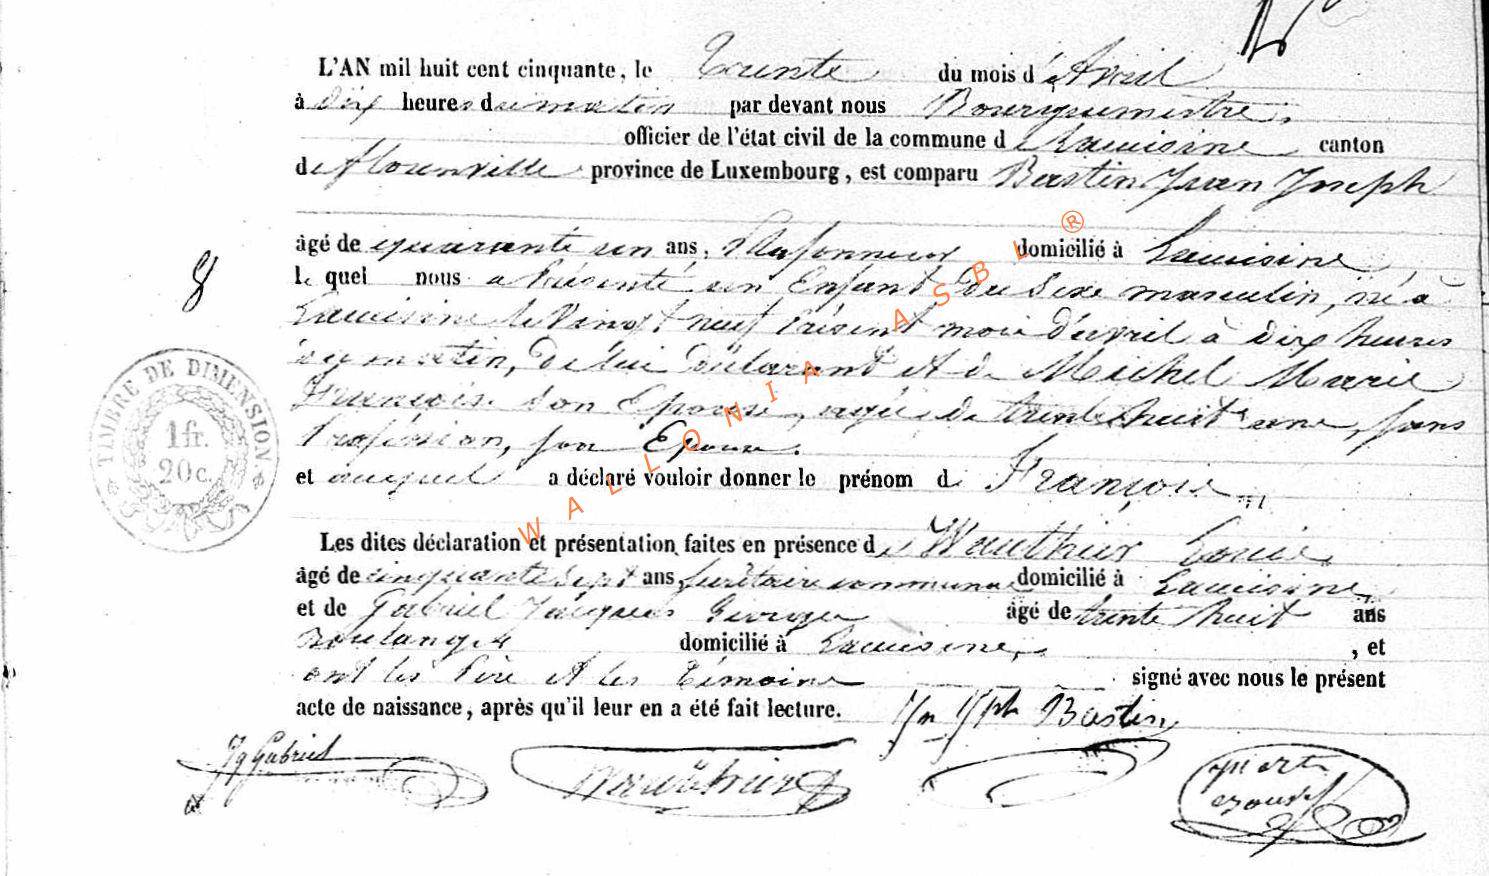 L'AN mil huit cent cinquante, le Trente du mois d'Avril
à dix heures du matin par devant nous Bourguemestre,
officier de l'état civil de la commune de Lacuisine canton
de florenville province de Luxembourg, est comparu Bastin Jean Joseph
âgé de quarante un ans, Plafonneur domicilié à Lacuisine,
8
le quel nous a Présenté un Enfant du Sexe masculin, né à
Lacuisine le Vingt neuf Présent mois d'avril à dix heures
du matin, de lui Déclarant et de Michel Marie
François son Epouse, agée de trente huit ans, sans
Profession, son Epoux.
et auquel a déclaré vouloir donner le prénom de François
TIMBRE DE DIMENSION
1 fr.
20 c.
Les dites déclaration et présentation faites en présence de Wauthier Louis
âgé de cinquante sept ans secrétaire communal domicilié à Lacuisine,
et de Gabriel Jacques Georges âgé de trente huit ans
Boulanger domicilié à Lacuisine, , et
ont les Père et les Témoins signé avec nous le présent
acte de naissance, après qu'il leur en a été fait lecture. Jn Jph Bastin
Jq Gabriel Wauthier
WALLONIA ASBL ®